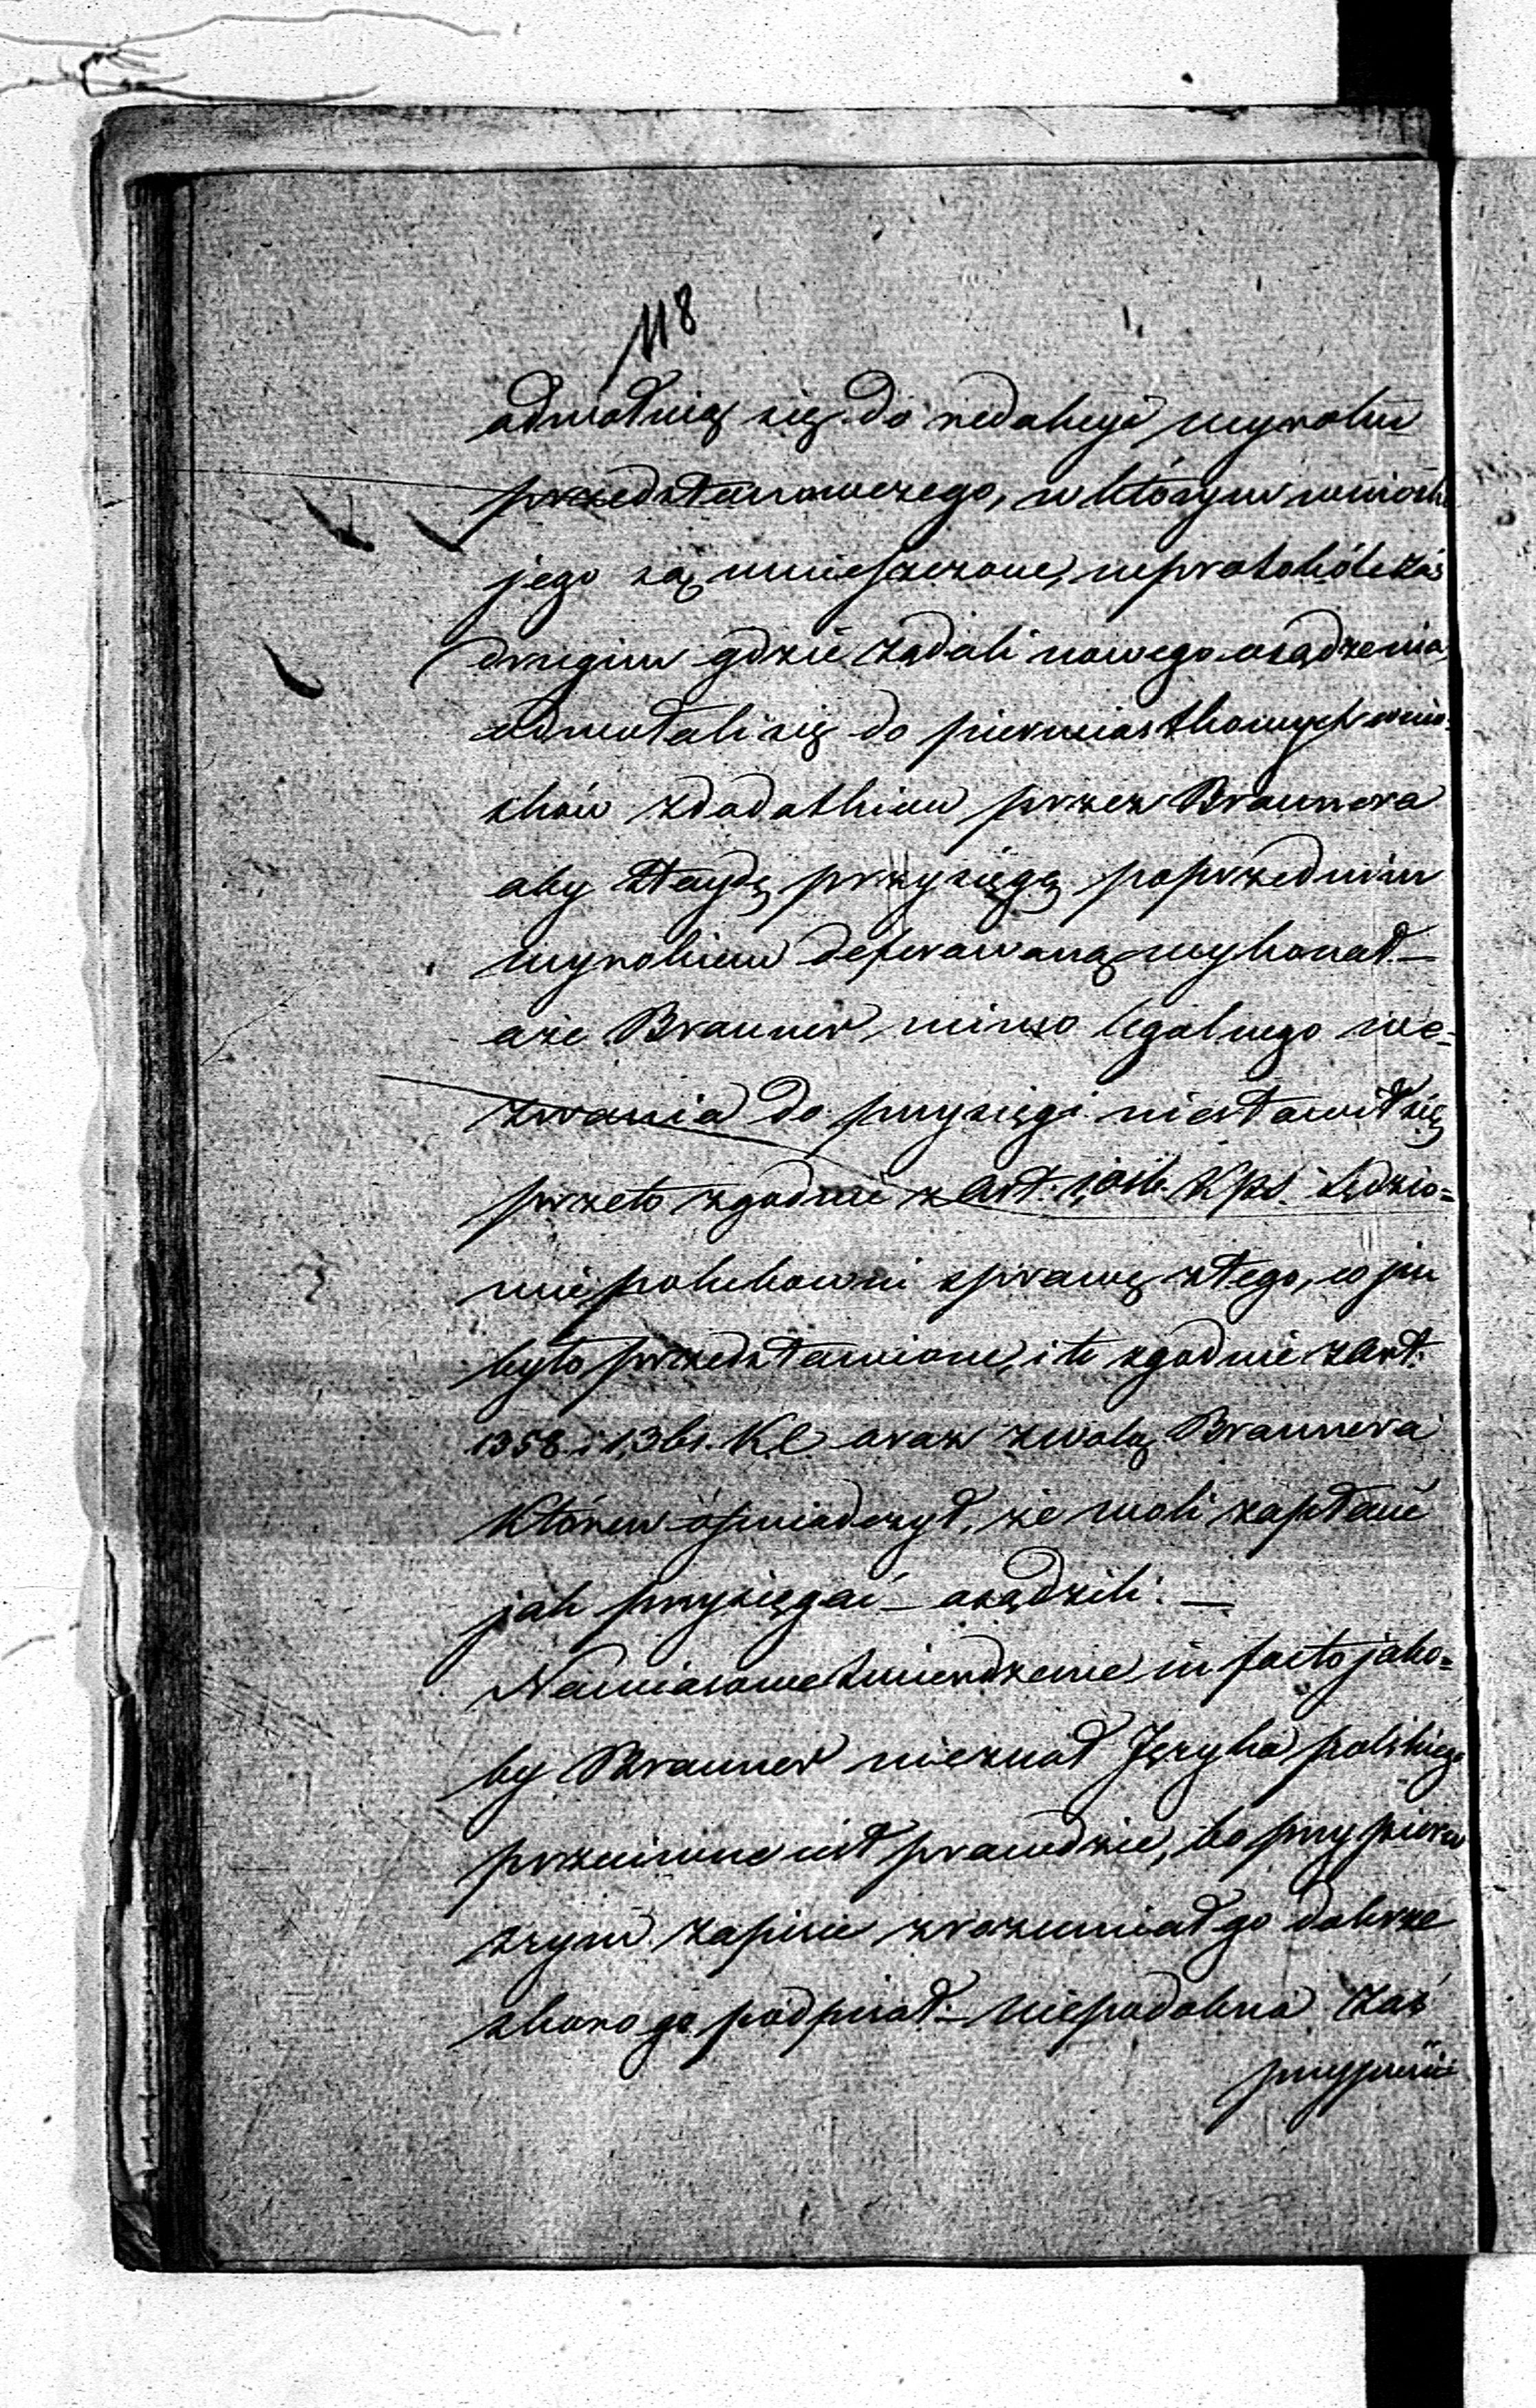 118
odwołują się do redakcyi wyroku
przedstanowczego, w którym wnioski
jego są umieszczone, w protokóle zaś
drugim gdzie żądali nowego osądzenia
odwołali się do pierwiastkowych wnio-
sków z dodatkiem przez Braunera
aby Stayda przysięgę poprzednim
wyrokiem deferowaną wykonał —
a że Brauner mimo legalnego we-
zwania do przysięgi niestawił się
przeto zgodnie z Art: 1,016. K.P.S. Sędzio-
wie polubowni sprawę z tego, co jim
było przedstawione, i to zgodnie z Art.
1358 i 1,361. K.C. oraz z wolą Braunera
którem oświadczył, że woli zapłacić
jak przysięgać — osądzili: —
Nawiasowe twierdzenie in facto jako-
by Brauner nieznał Języka polskiego
przeciwne jest prawdzie, bo przy pierw
szym zapisie zrozumiał go dobrze
skoro go podpisał — niepodobna zaś
przypuścić